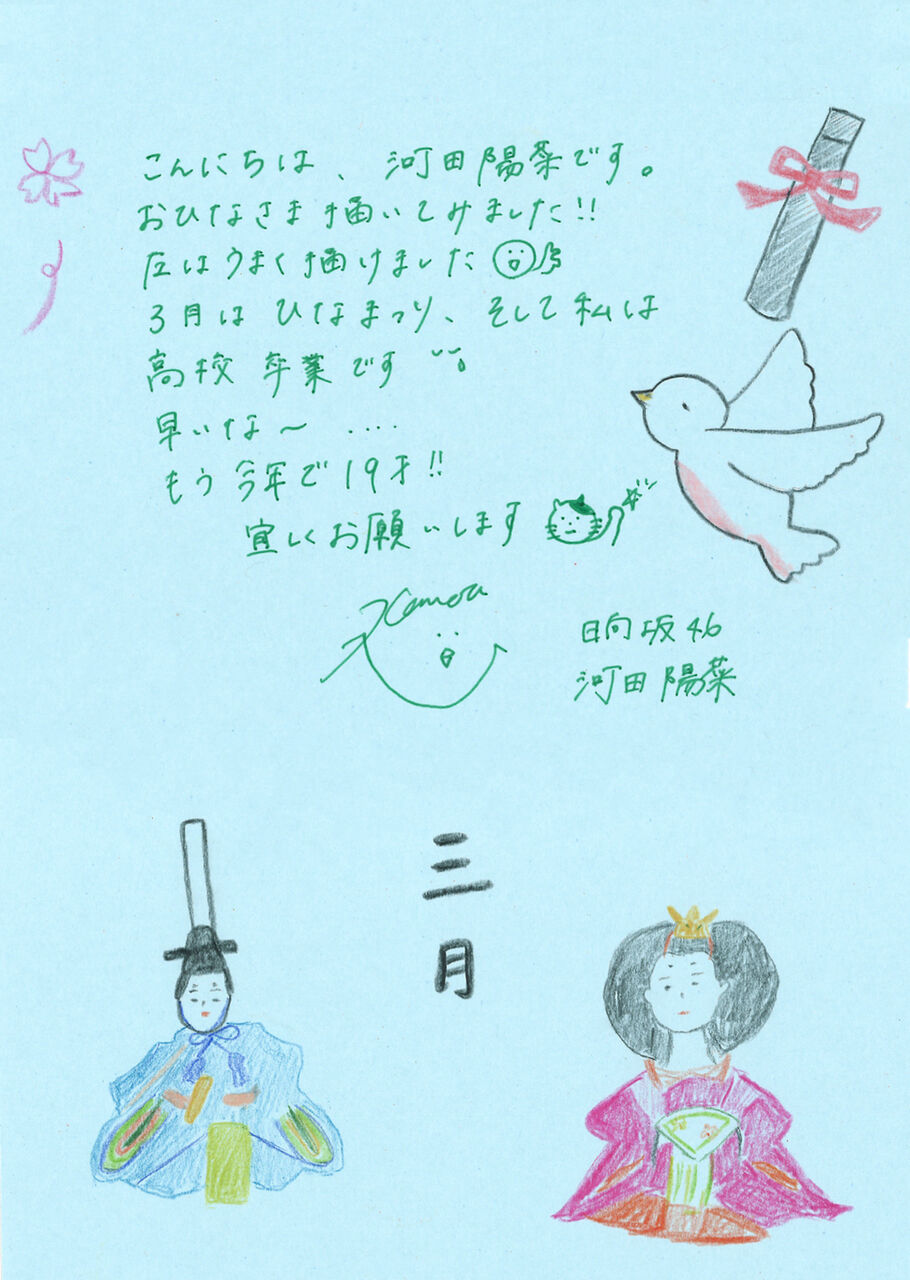 こんにちは、河田陽菜です。
おひなさま描いてみました!!
左はうまく描けました
3月は ひなまつり、そして私は
高校 卒業です
早いな〜 ....
もう今年で19才!!
宜しくお願いします
日向坂46
河田陽菜
三月